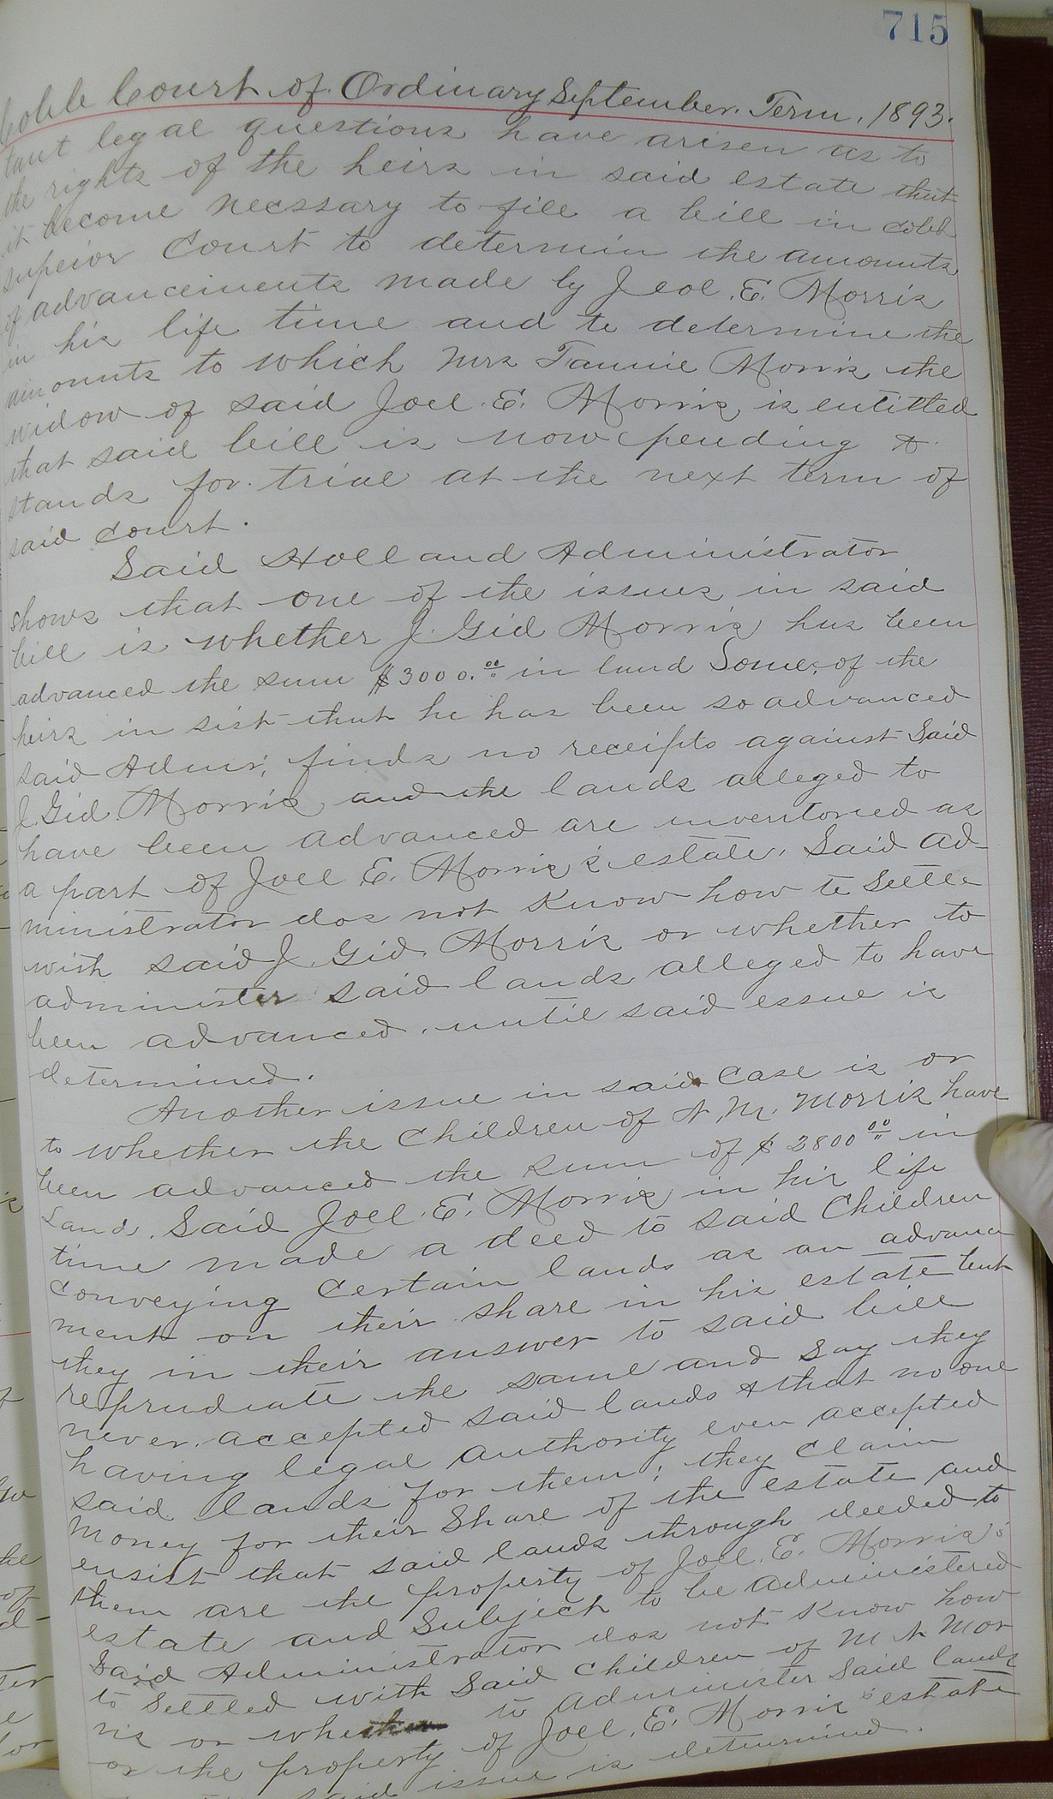 715
Cobb Court of Ordinary September Term, 1893.
tant legal questions have arisen as to
the rights of the heirs in said estate that
it become necssary to file a bill in Cobb
Supeior Court to determin the amounts
of advancements made by Joel. E. Morris
in his life time and to determine the
amounts to which Mrs Tannie Morris the
widow of said Joel. E. Morris is entitled
that said bill is now pending &
stands for trial at the next term of
said court.
Said Holland Administrator
shows that one of the issues in said
bill is whether J. Gid Morris has been
advanced the sum $3000.00 in land Some of the
heirs in sist that he has been so advanced
said Admr, finds no receipts against Said
J. Gid. Morris and the lands alleged to
have been advanced are inventoried as
a part of Joel E. Morris's estate. Said ad-
ministrator dos not Know how to Settle
with said J. Gid. Morris or whether to
administer said lands alleged to have
been advanced. until said essue is
determined.
Another issue in said Case is or
to whether the Children of N. M. Morris have
been advanced the sum of $2800.00 in
Land. Said Joel. E. Morris in his life
time made a deed to said Children
conveying certain lands as an advance
ment on their share in his estate but
they in their answer to said bill
reprudiate the same and say they
never accepted said lands & that no one
having legal authority even accepted
said lands for them; they Claim
Money for their Share of the estate and
ensist that said lands through deeded to
them are the property of Joel. E. Morris's
estate and Subject to be administered
Said Administrator dos not Know how
to settled with said Children of M N Mor
ris or whether to administer said lands
or the property of Joel. E. Morris's estate
said issue is determined.